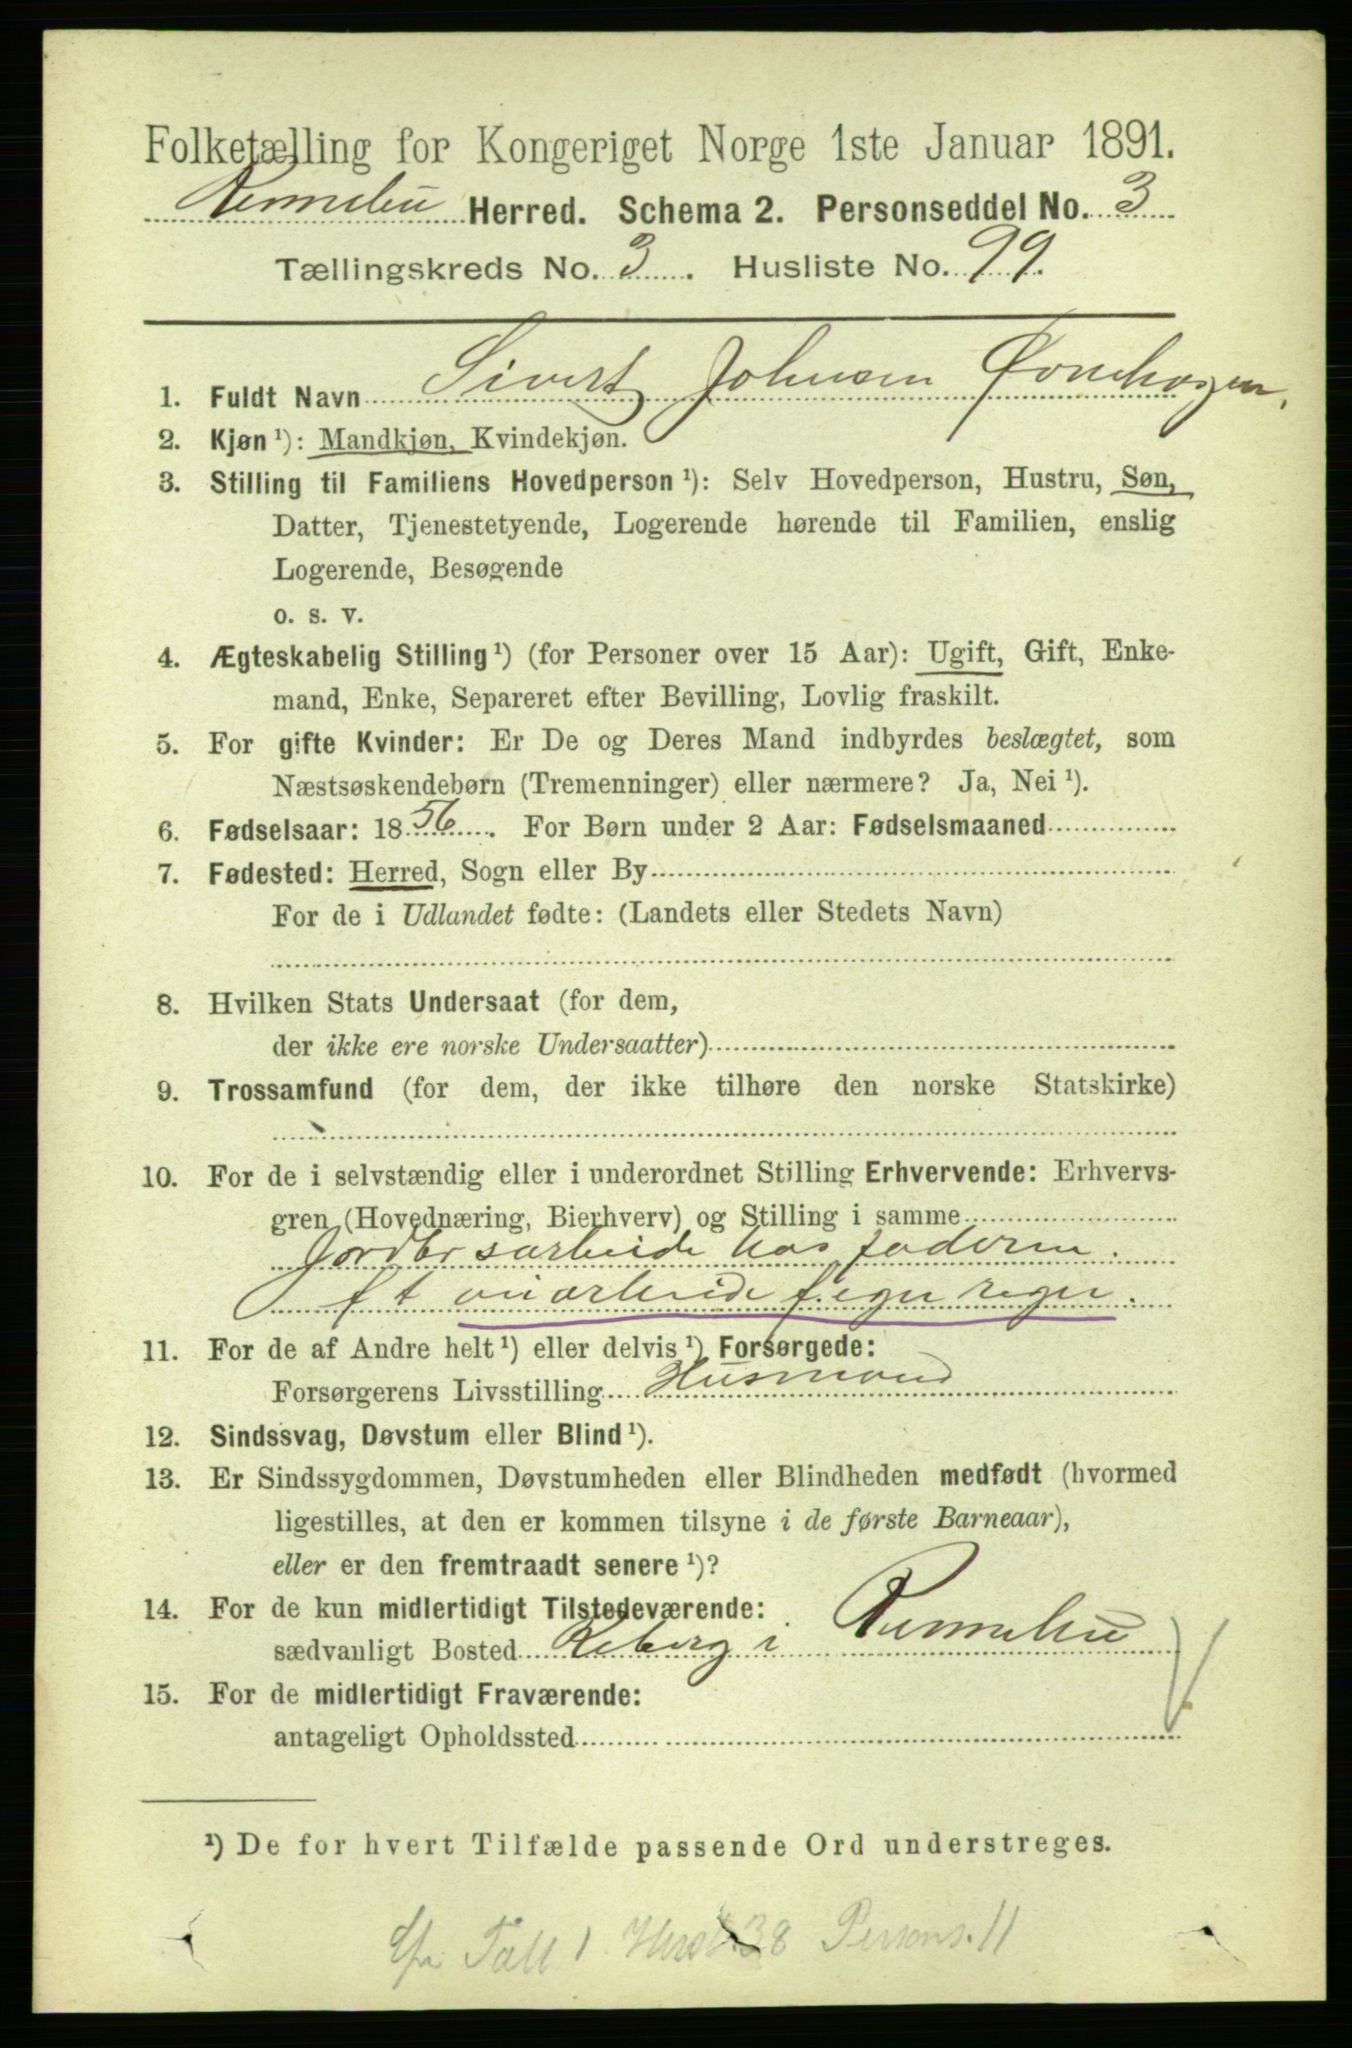 Folketælling for Kongeriget Norge 1ste Januar 1891.
Rennebu Herred. Schema 2. Personseddel No. 3
Tællingskreds No. 3. Husliste No. 99.
1. Fuldt Navn Sivert Johnsen
2. Kjøn ¹): Mandkjøn, Kvindekjøn.
3. Stilling til Familiens Hovedperson ¹): Selv Hovedperson, Hustru, Søn,
Datter, Tjenestetyende, Logerende hørende til Familien, enslig
Logerende, Besøgende
o. s. v.
4. Ægteskabelig Stilling ¹) (for Personer over 15 Aar): Ugift, Gift, Enke-
mand, Enke, Separeret efter Bevilling, Lovlig fraskilt.
5. For gifte Kvinder: Er De og Deres Mand indbyrdes beslægtet, som
Næstsøskendebørn (Tremenninger) eller nærmere? Ja, Nei ¹).
6. Fødselsaar: 1856. For Børn under 2 Aar: Fødselsmaaned
7. Fødested: Herred, Sogn eller By
For de i Udlandet fødte: (Landets eller Stedets Navn)
8. Hvilken Stats Undersaat (for dem,
der ikke ere norske Undersaatter)
9. Trossamfund (for dem, der ikke tilhøre den norske Statskirke)
10. For de i selvstændig eller i underordnet Stilling Erhvervende: Erhvervs-
gren (Hovednæring, Bierhverv) og Stilling i samme
Jordbrsarbeide hos faderen.
arbeide f. egen regn.
11. For de af Andre helt ¹) eller delvis ¹) Forsørgede:
Forsørgerens Livsstilling Husmand
12. Sindssvag, Døvstum eller Blind ¹).
13. Er Sindssygdommen, Døvstumheden eller Blindheden medfødt (hvormed
ligestilles, at den er kommen tilsyne i de første Barneaar),
eller er den fremtraadt senere ¹)?
14. For de kun midlertidigt Tilstedeværende:
sædvanligt Bosted Reberg i Rennebu
15. For de midlertidigt Fraværende:
antageligt Opholdssted
¹) De for hvert Tilfælde passende Ord understreges.
Cfr Tæll 1 Husl. 38 Persons. 11